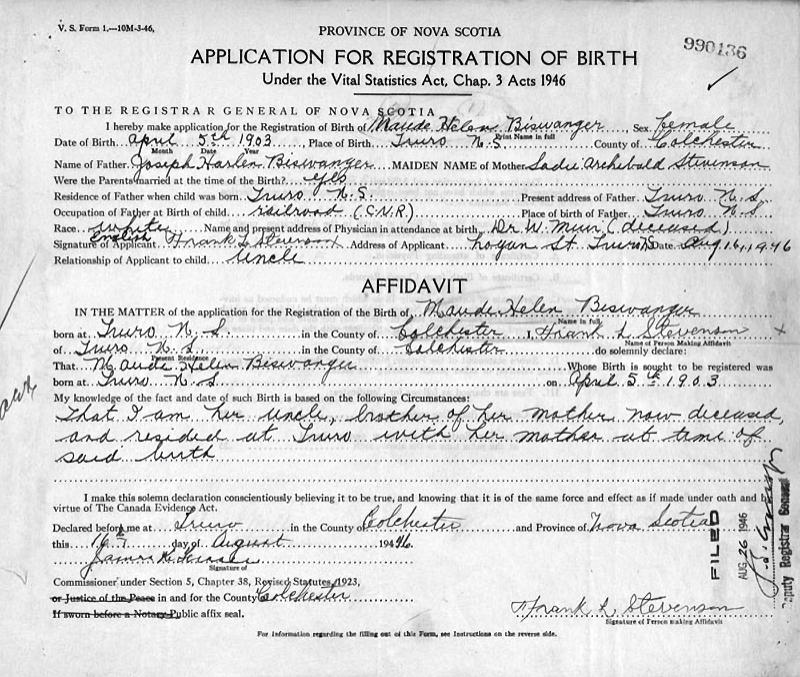 V. S. Form 1.—10M-3-46.
PROVINCE OF NOVA SCOTIA
990136
APPLICATION FOR REGISTRATION OF BIRTH
Under the Vital Statistics Act, Chap. 3 Acts 1946
TO THE REGISTRAR GENERAL OF NOVA SCOTIA
I hereby make application for the Registration of Birth of Maude Helen Biswanger Sex female
Print Name in full
Date of Birth April 5th 1903 Place of Birth Truro N.S. County of Colchester
Month Date Year
Name of Father Joseph Harlen Biswanger MAIDEN NAME of Mother Sadie Archibald Stevenson
Were the Parents married at the time of the Birth? Yes
Residence of Father when child was born Truro N.S. Present address of Father Truro N.S.
Occupation of Father at Birth of child railroad (C.N.R.) Place of birth of Father Truro N.S
Race white Name and present address of Physician in attendance at birth Dr. W. Muir (deceased)
English
Signature of Applicant Frank L Stevenson Address of Applicant Logan St. Truro NS Date Aug 16, 1946
Relationship of Applicant to child Uncle
AFFIDAVIT
IN THE MATTER of the application for the Registration of the Birth of Maude Helen Biswanger
Name in full
born at Truro N.S in the County of Colchester I, Frank L Stevenson x
Name of Person Making Affidavit
of Truro N.S in the County of Colchester do solemnly declare:
Present Residence
That Maude Helen Biswanger Whose Birth is sought to be registered was
born at Truro N.S on April 5th 1903
My knowledge of the fact and date of such Birth is based on the following Circumstances:
That I am her uncle, brother of her mother now deceased,
and resided at Truro with her mother at time of
said birth
I make this solemn declaration conscientiously believing it to be true, and knowing that it is of the same force and effect as if made under oath and by
virtue of The Canada Evidence Act.
Declared before me at Truro in the County of Colchester and Province of Nova Scotia
this 16th day of August 1946
James
Signature of
Commissioner under Section 5, Chapter 38, Revised Statutes, 1923,
or Justice of the Peace in and for the County Colchester
If sworn before a Notary Public affix seal.
Frank L Stevenson
Signature of Person making Affidavit
For Information regarding the filling out of this Form, see Instructions on the reverse side.
FILED
AUG 26 1946
Deputy Registrar General